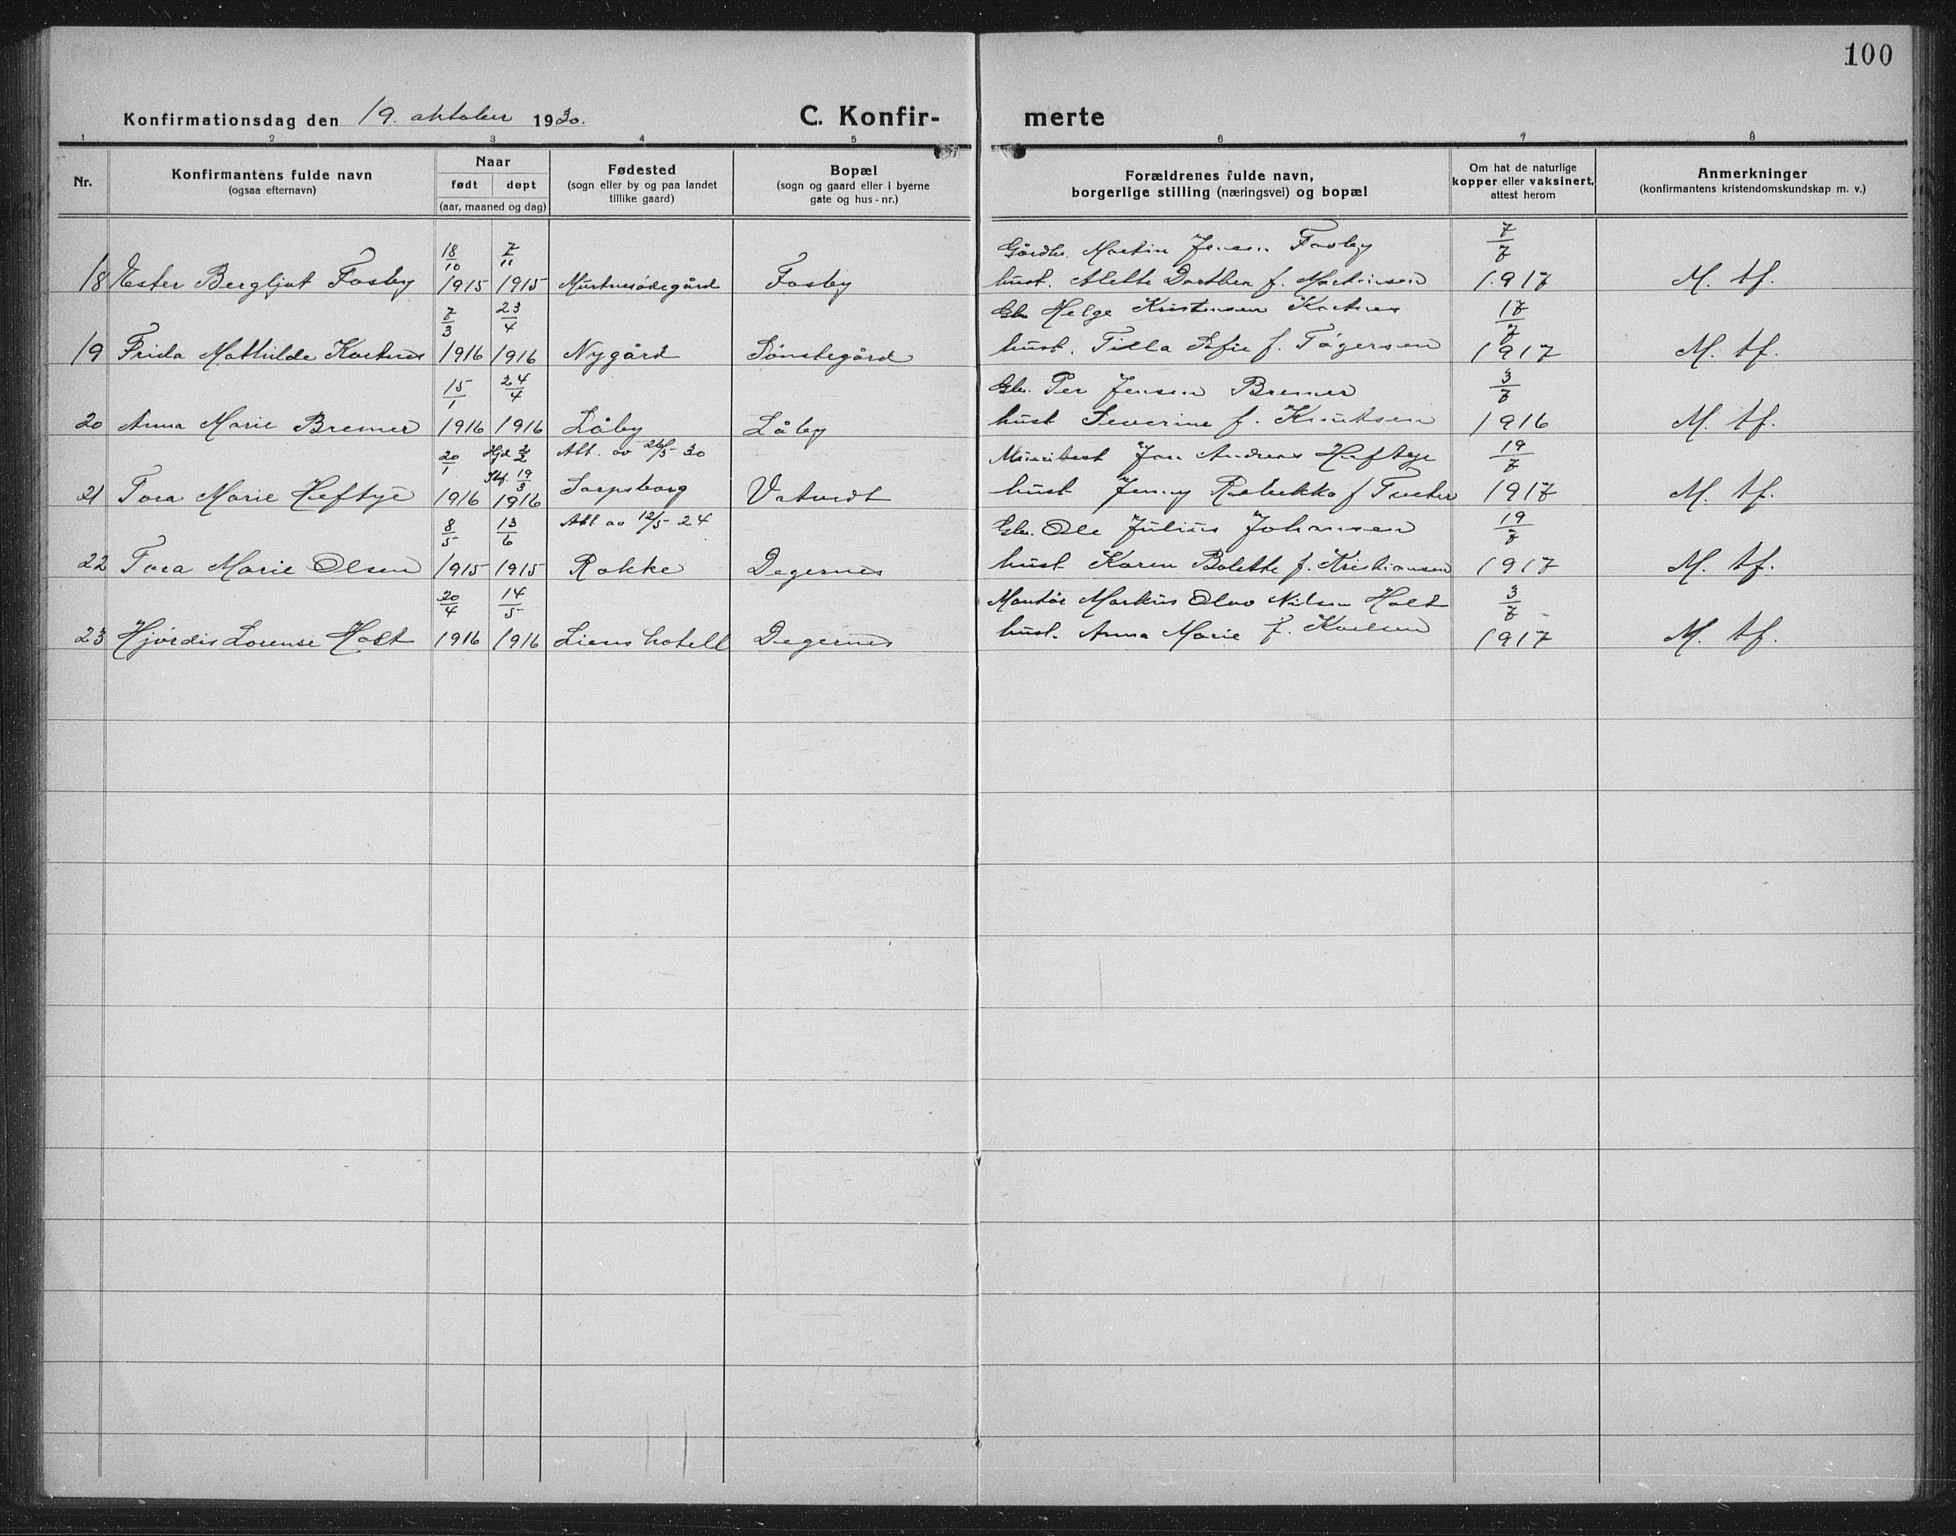 100
Konfirmationsdag den 19. oktober 1930.
C. Konfir- merte
1 2 3 4 5 6 7 8
Nr.
Konfirmantens fulde navn
(ogsaa efternavn)
Naar
født døpt
(aar, maaned og dag)
Fødested
(sogn eller by og paa landet
tillike gaard)
Bopæl
(sogn og gaard eller i byerne
gate og hus-nr.)
Forældrenes fulde navn,
borgerlige stilling (næringsvei) og bopæl
Om hat de naturlige
kopper eller vaksinert,
attest herom
Anmerkninger
(konfirmantens kristendomskundskap m. v.)
18/10 7/11 Gårdbr. Martin Jensen Fosby 7/7
18 Ester Bergljot Fosby 1915 1915 Fosby hust. Alette Dorthea f. Martinsen 1917 M. tf.
7/3 23/4 Gbr. Helge Kristensen 17/7
19 Frida Mathilde 1916 1916 Nygård Sønstegård hust. Tilla Sofie f. Tøgersen 1917 M. tf.
15/1 24/4 Gbr. Per Jensen Bremer 3/7
20 Anna Marie Bremer 1916 1916 Låby Låby hust Severine f. Knutsen 1916 M. tf.
20/1 Hjd 2/2 Att. av 26/5 30 Andreas Heftye 19/7
Stf. 19/3
21 Tora Marie Heftye 1916 1916 Sarpsborg Vatvedt hust Jenny Rebekka f Tveter 1917 M. tf.
8/5 13/6 Att av 12/5 24 Gbr. Ole Julius Johansen 19/7
22 Tora Marie Olsen 1915 1915 Rokke Degernes hust Karen Bolette f. Kristiansen 1917 M. tf.
20/4 14/5 Montør Markus Olvo Nilsen Holt 3/7
23 Hjørdis Lorense Holt 1916 1916 Liens hotell Degernes hust. Anna Marie f. Karlsen 1917 M. tf.